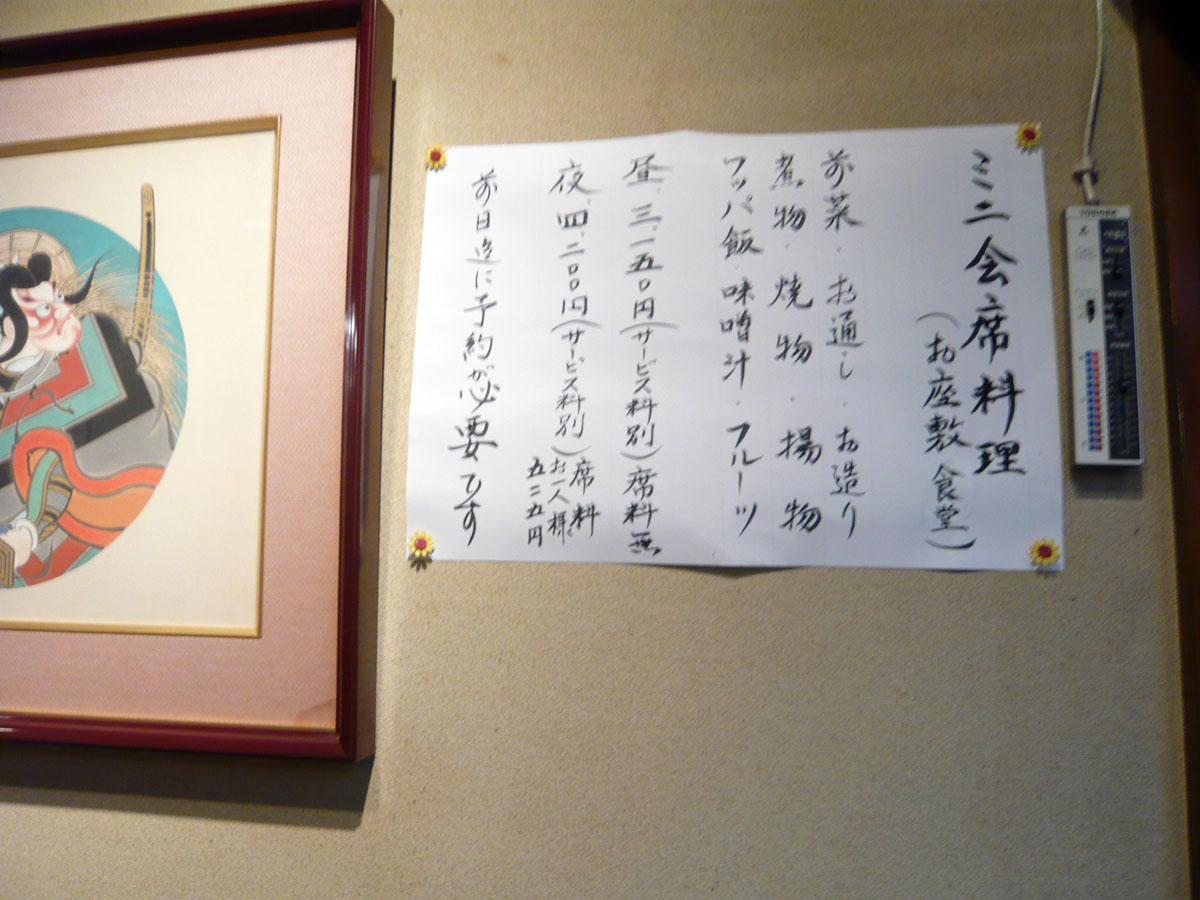 ミニ会席料理
(お座敷食堂)
前菜・お通し・お造り
煮物・焼物・揚物
ワッパ飯・味噌汁・フルーツ
昼、三、一五〇円(サービス料別)席料無
夜、四、二〇〇円(サービス料別)席料
お一人様
五二五円
前日迄に予約が必要です
TOSHIBA